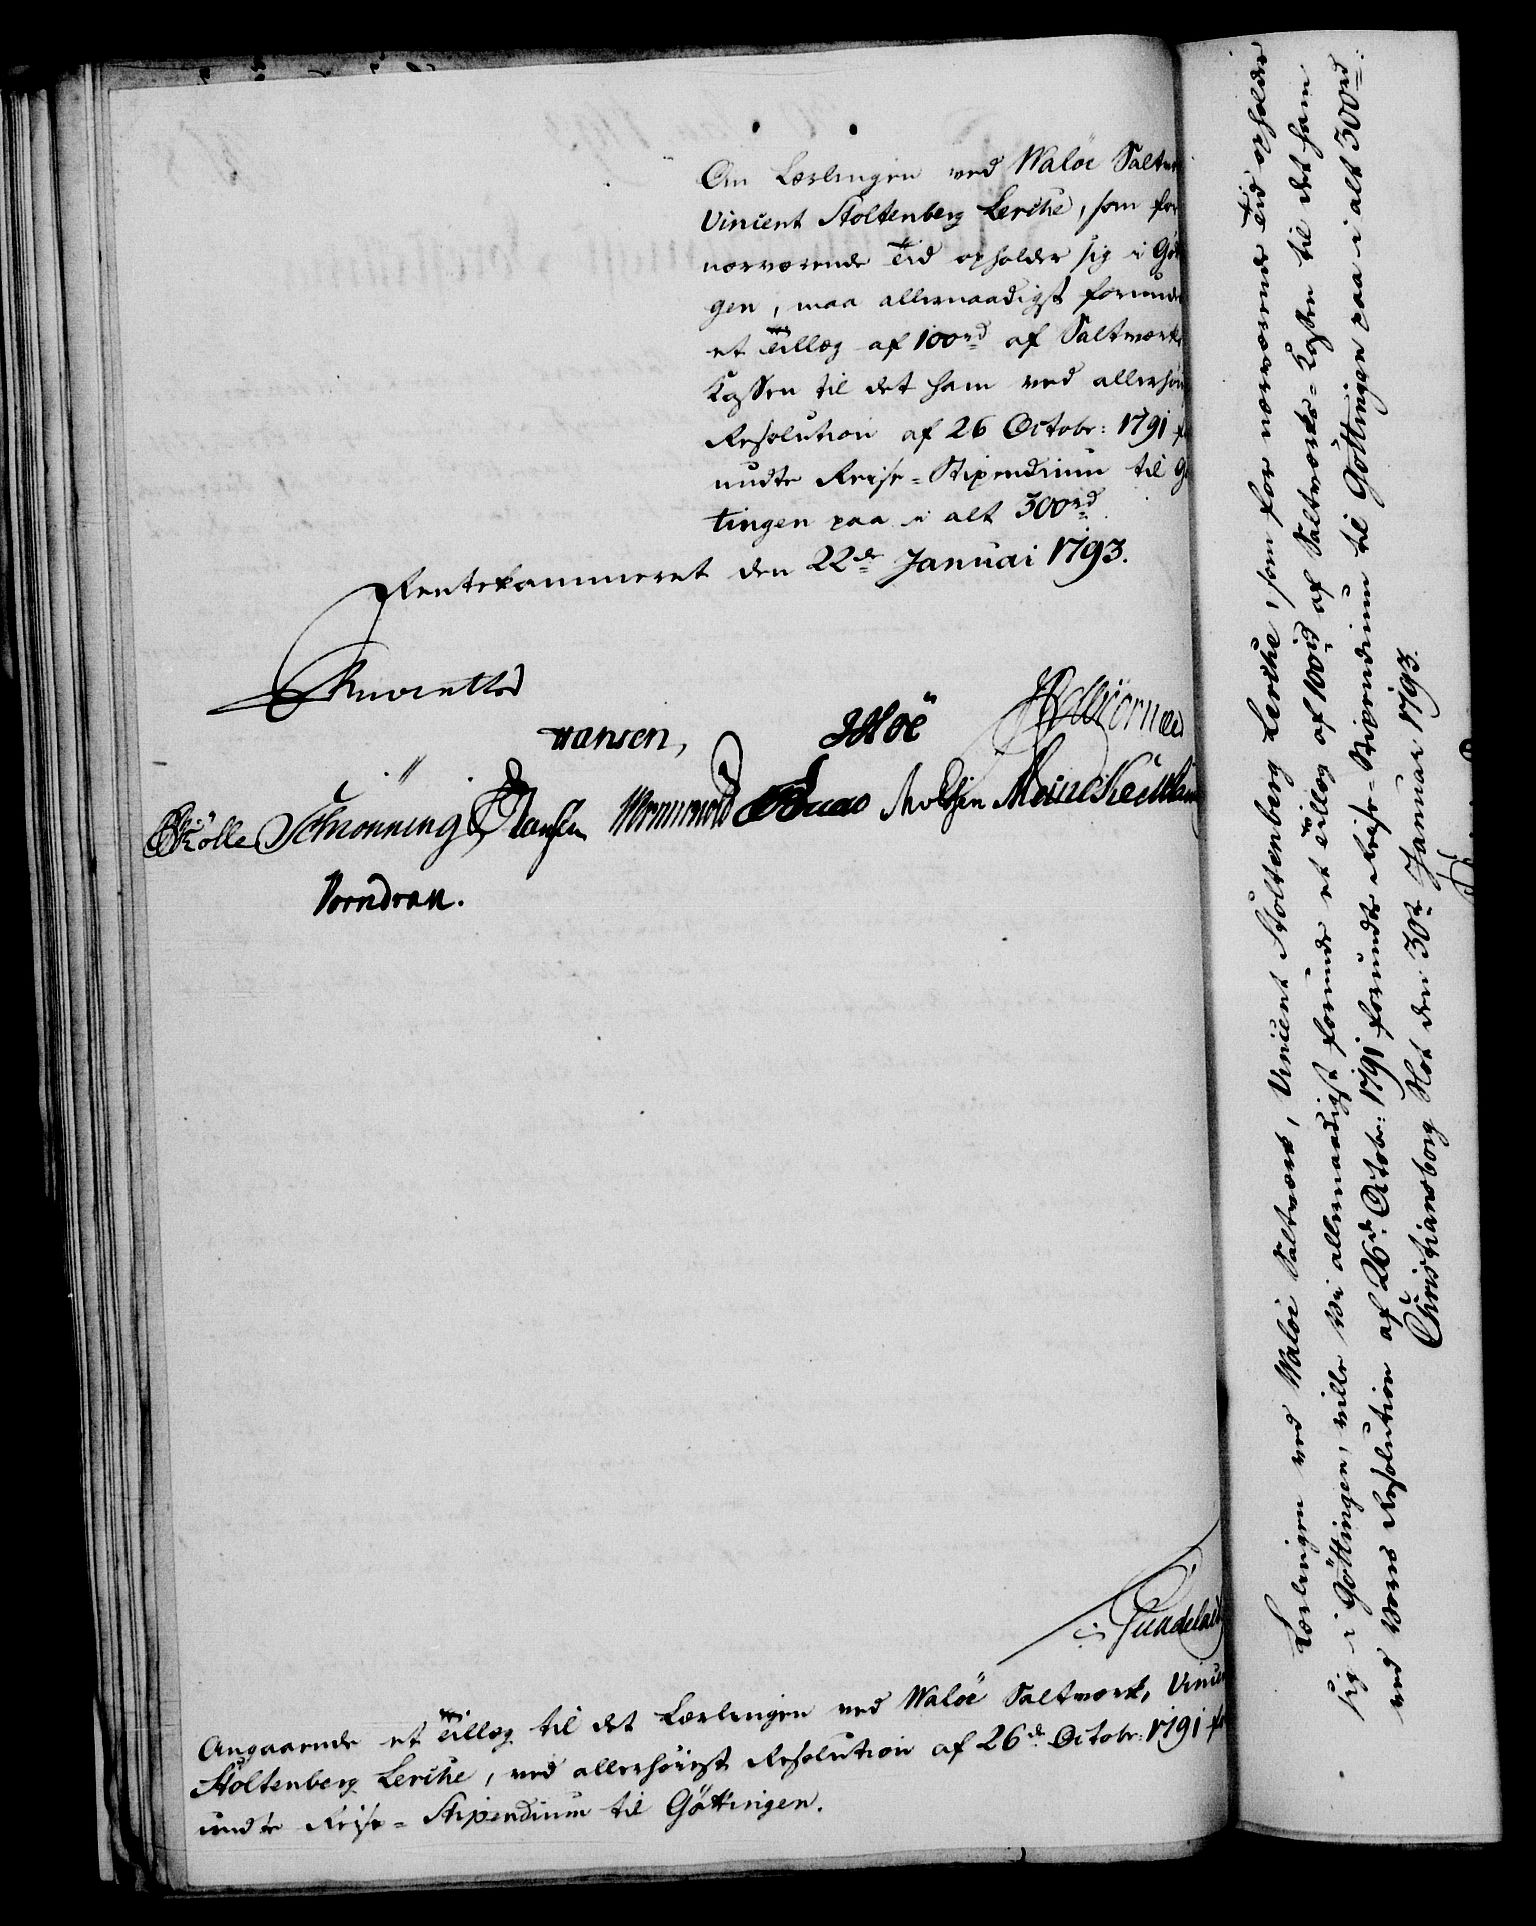 Om Lærlingen ved Waløe Saltv
Vincent Stoltenberg Lerche, som for
nærværende Tid opholder sig i Göt
gen, maa allernaadigst forunde
et Tillæg af 100rd af Saltværks
Kassen til det ham ved allerhøi
Resolution af 26 Octobr: 1791 f
undte Reise-Stipendium til Gö
tingen paa i alt 300rd
Rentekammeret den 22de Januari 1793.
Hansen,
Schiönning Hansen
Vorndran.
Angaaende et Tillæg til det Lærlingen ved Waløe Saltværk, Vincen
Stoltenberg Lerche, ved allerhøiest Resolution af 26de Octobr: 1791 fo
undte Reise-Stipendium til Göttingen.
Lærlingen ved Waløe Saltværk, Vincent Stoltenberg Lerche, som for nærværende Tid opholder
sig i Göttingen, ville Vi allernaadigst forunde et Tillæg af 100rd af Saltværks-Kassen til det ham
ved Vores Resolution af 26de Octobr: 1791 forundte Reise-Stipendium til Göttingen paa i alt 300rd:
Christiansborg Slot den 30te Januar 1793.